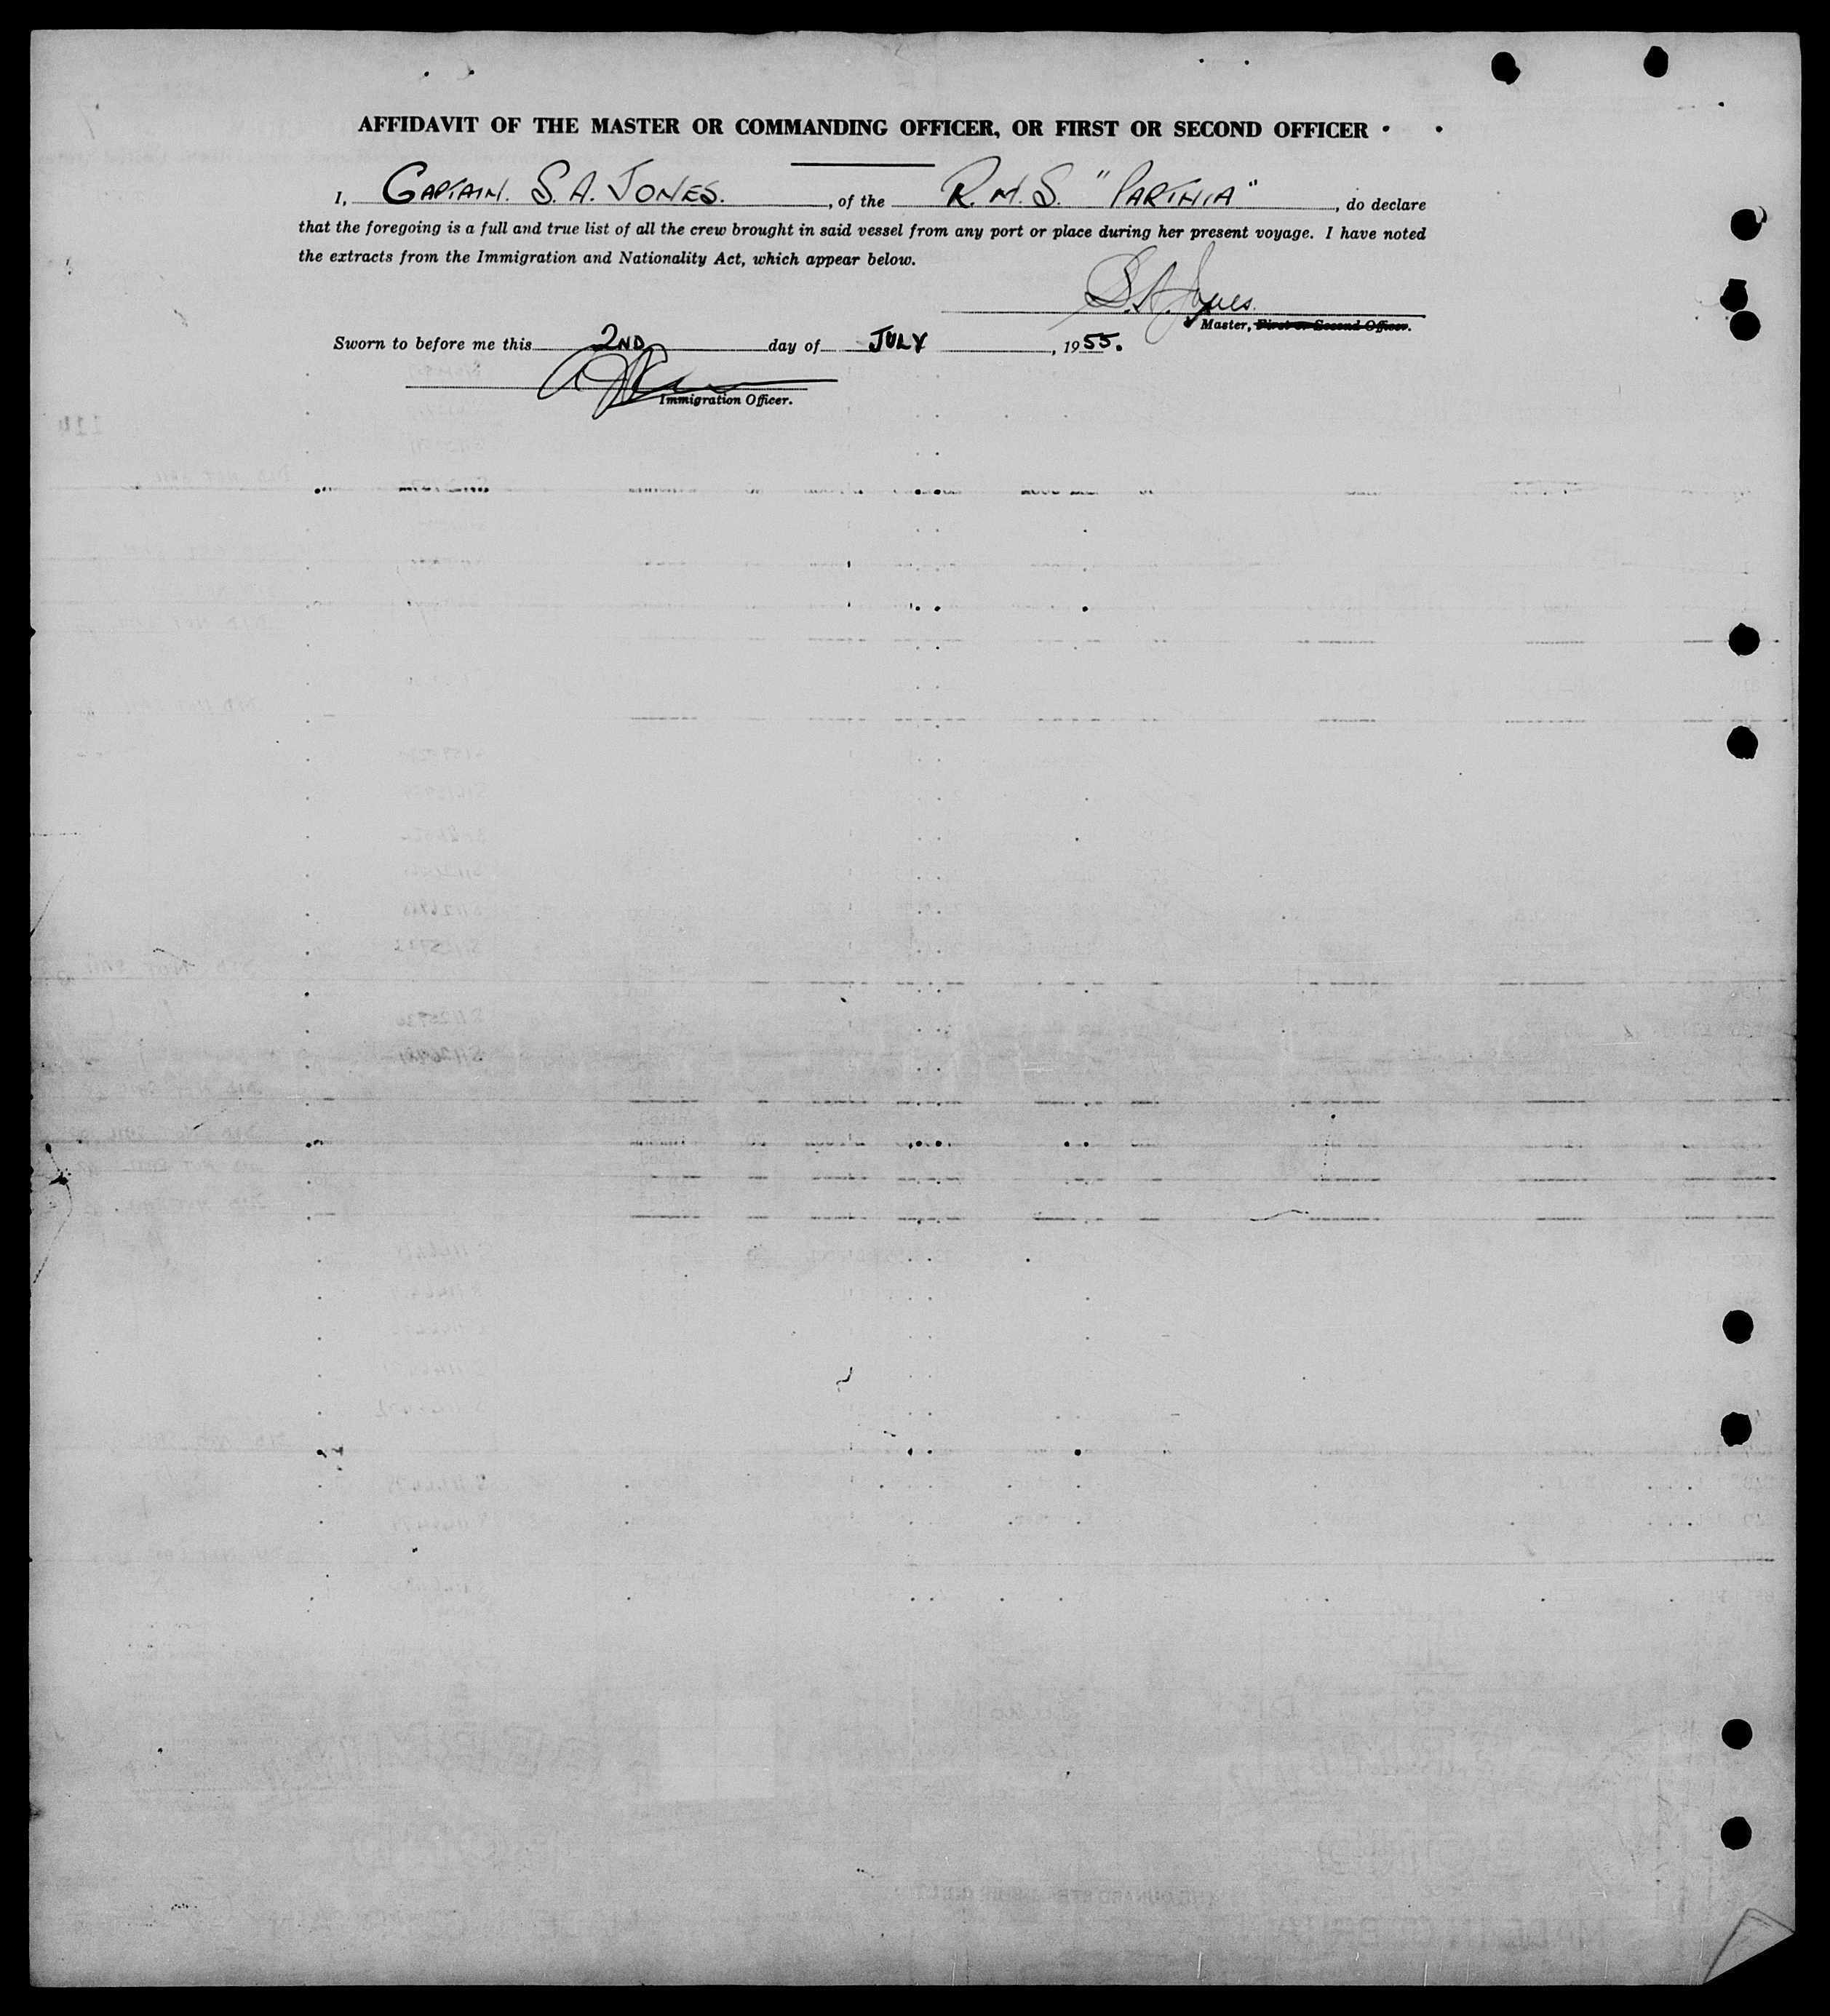 AFFIDAVIT OF THE MASTER OR COMMANDING OFFICER, OR FIRST OR SECOND OFFICER
I, CAPTAIN. S. A. JONES. , of the R. M. S. "PARTHIA" , do declare
that the foregoing is a full and true list of all the crew brought in said vessel from any port or place during her present voyage. I have noted
the extracts from the Immigration and Nationality Act, which appear below.
S. A. Jones.
Master, First or Second Officer.
Sworn to before me this 2ND day of JULY , 1955.
Immigration Officer.